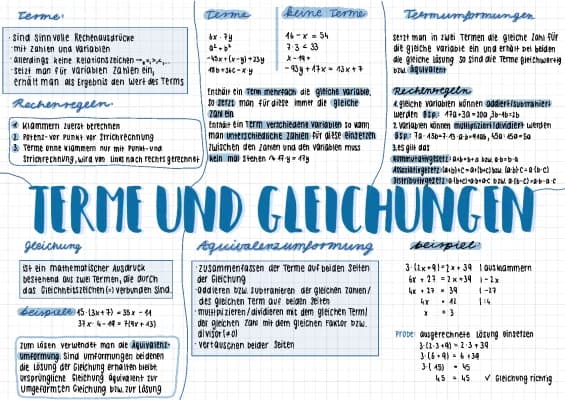 Terme:
· sind sinnvolle Rechenausdrücke
· mit Zahlen und Variablen
· allerdings keine Relationszeichen
· setzt man für Variablen Zahlen ein,
erhält man als Ergebnis den Wert des Terms
Rechenregeln:
1 Klammern zuerst berechnen
2. Potenz- vor Punkt- vor Strichrechnung
3. Terme ohne Klammer nur mit Punkt- und
Strichrechnung, wird von links nach rechts gerechnet
Terme
6x · 7y
a² + b²
18b + 36c - x · y
keine Terme
16 - x = 54
7 · 3 < 33
-93y + 17x = 13x + 7
Enthält ein Term mehrfach die gleiche Variable,
so setzt man für diese immer die gleiche
Zahl ein
Enthält ein Term verschiedene Variablen so kann
man unterschiedliche Zahlen für diese einsetzen
zwischen den Zahlen und den Variablen muss
kein mal stehen → 17·y = 17y
Termumformungen
Setzt man in zwei Termen die gleiche Zahl für
die gleiche Variable ein und erhält bei beiden
die gleiche Lösung. So sind die Terme gleichwertig
bzw. äquivalent
Rechenregeln
1. gleiche Variablen können addiert/subtrahiert
werden Bsp.: 17a + 3a = 20a
2. Variablen können multipliziert/dividiert werden
Bsp.:
3. es gilt das
Kommutativgesetz: a+b = b+a bzw. a·b = b·a
Assoziativgesetz: (a+b)+c = a+(b+c) bzw. (a·b)·c = a·(b·c)
Distributivgesetz:
TERME UND GLEICHUNGEN
Gleichung
ist ein mathematischer Ausdruck
bestehend aus zwei Termen, die durch
das Gleichheitszeichen (=) verbunden sind.
beispiele: 15·(3x+7) = 35x - 11
37x · 4 - 18 = 7(9x + 13)
zum lösen verwendet man die Äquivalenz-
umformung. Sind Umformungen bei denen
die Lösung der Gleichung erhalten bleibt.
ursprüngliche Gleichung äquivalent zur
umgeformten Gleichung bzw. zur Lösung
Äquivalenzumformung
· zusammenfassen der Terme auf beiden Seiten
der Gleichung
· addieren bzw. subtrahieren der gleichen Zahlen/
des gleichen Term auf beiden Seiten
· multiplizieren/dividieren mit dem gleichen Term/
der gleichen Zahl mit dem gleichen Faktor bzw.
divisor (≠0)
· vertauschen beider Seiten
beispiel
3·(2x+9) = 2x + 39 | ausklammern
6x + 27 = 2x + 39 | -2x
4x + 27 = 39 | -27
4x = 12 | :4
x = 3
Probe: ausgerechnete Lösung einsetzen
3·(2·3+9) = 2·3 + 39
3·(6+9) = 6 + 39
3·(15) = 45
45 = 45 ✓ Gleichung richtig